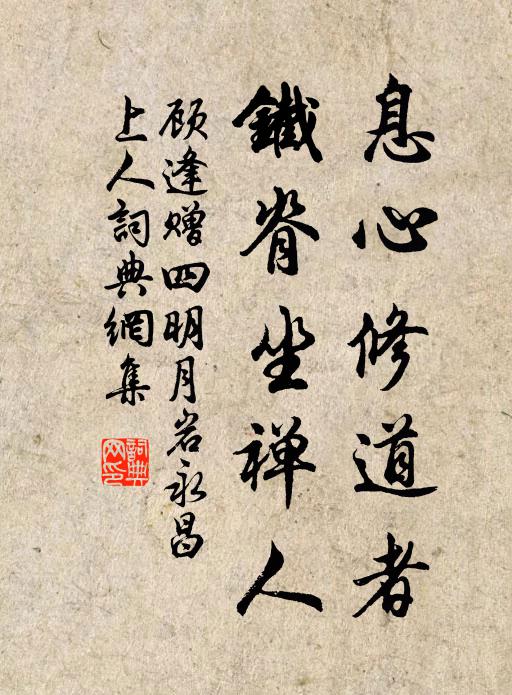 息心修道者
鐵脊坐禅人
顾逢贈四明月岩永昌
上人詞典網集
詞典
网印